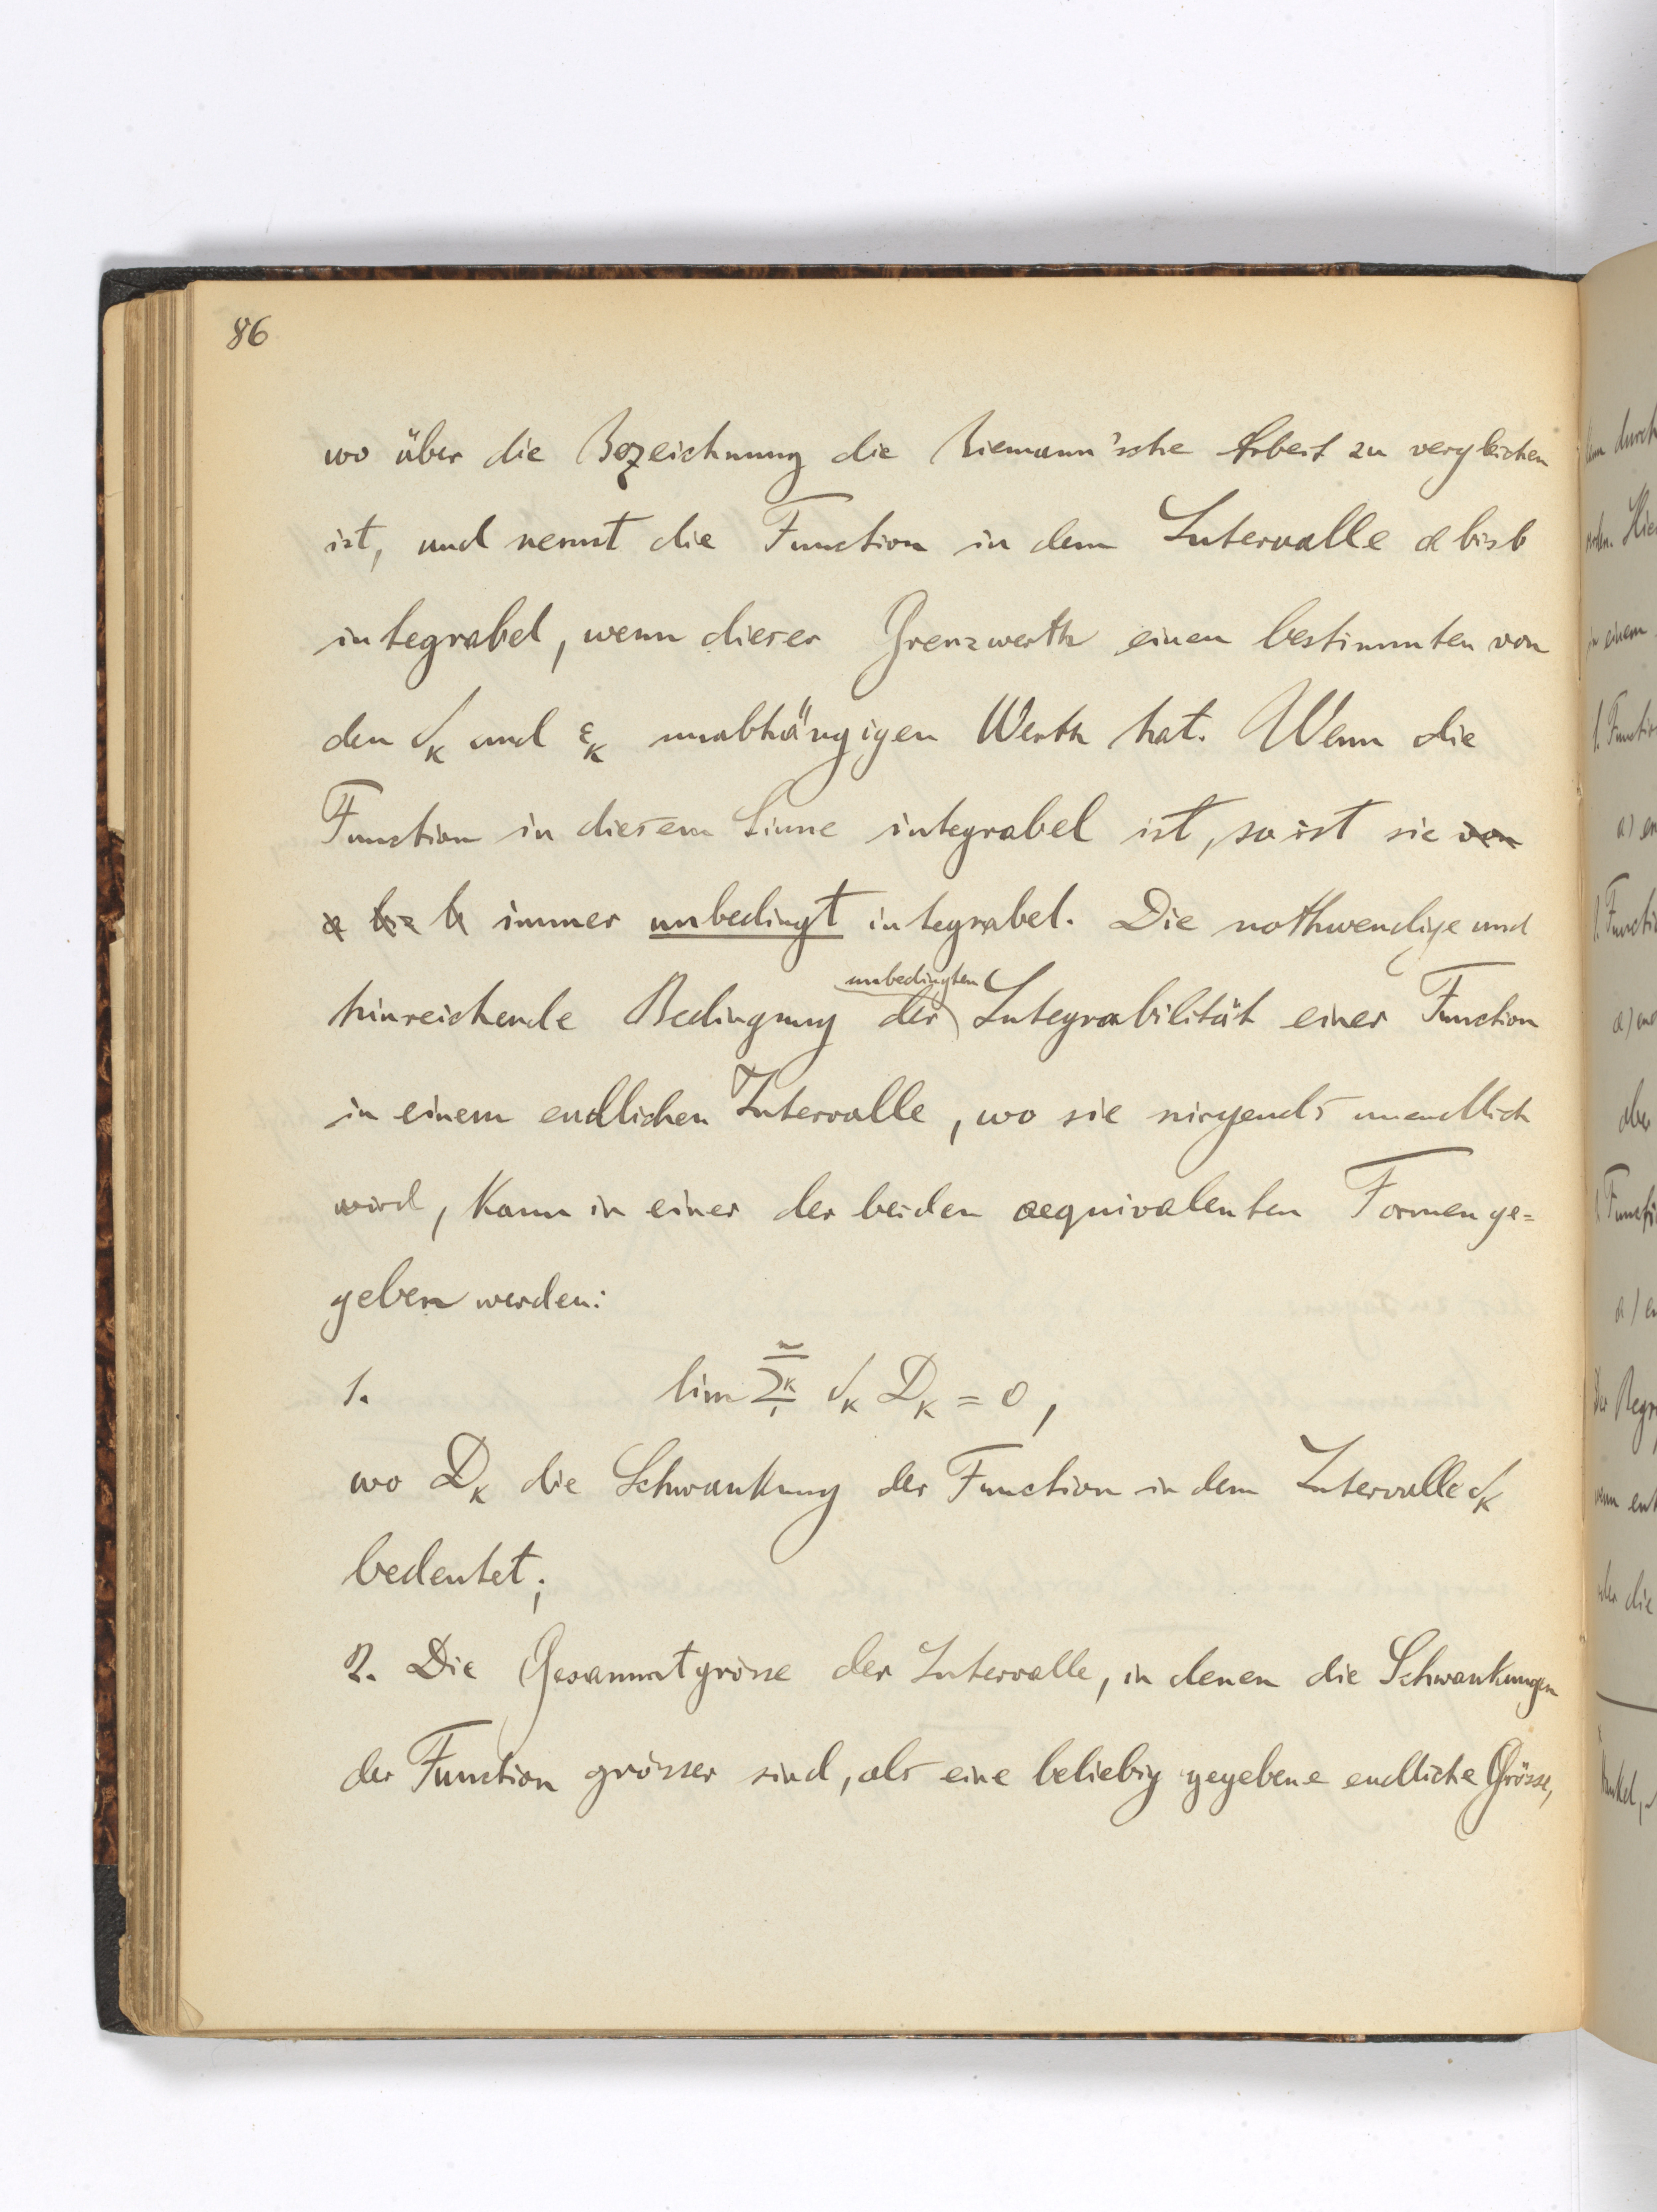 86
wo über die Bezeichnung die Riemann'sche Arbeit zu vergleichen
ist, und nennt die Function in dem Intervalle a bis b
integrabel, wenn dieser Grenzwerth einen bestimmten von
den δ_K und ε_K unabhängigen Werth hat. Wenn die
Function in diesem Sinne integrabel ist, so ist sie von
a bis b immer unbedingt integrabel. Die nothwendige und
unbedingten
hinreichende Bedingung der Integrabilität einer Function
in einem endlichen Intervalle, wo sie nirgends unendlich
wird, kann in einer der beiden aequivalenten Formen ge=
geben werden:
1. lim Σ_1^n K δ_K D_K = 0,
wo D_K die Schwankung der Function in dem Intervalle δ_K
bedeutet;
2. Die Gesammtgrösse der Intervalle, in denen die Schwankungen
der Function grösser sind, als eine beliebig gegebene endliche Grösse,
durch
einem